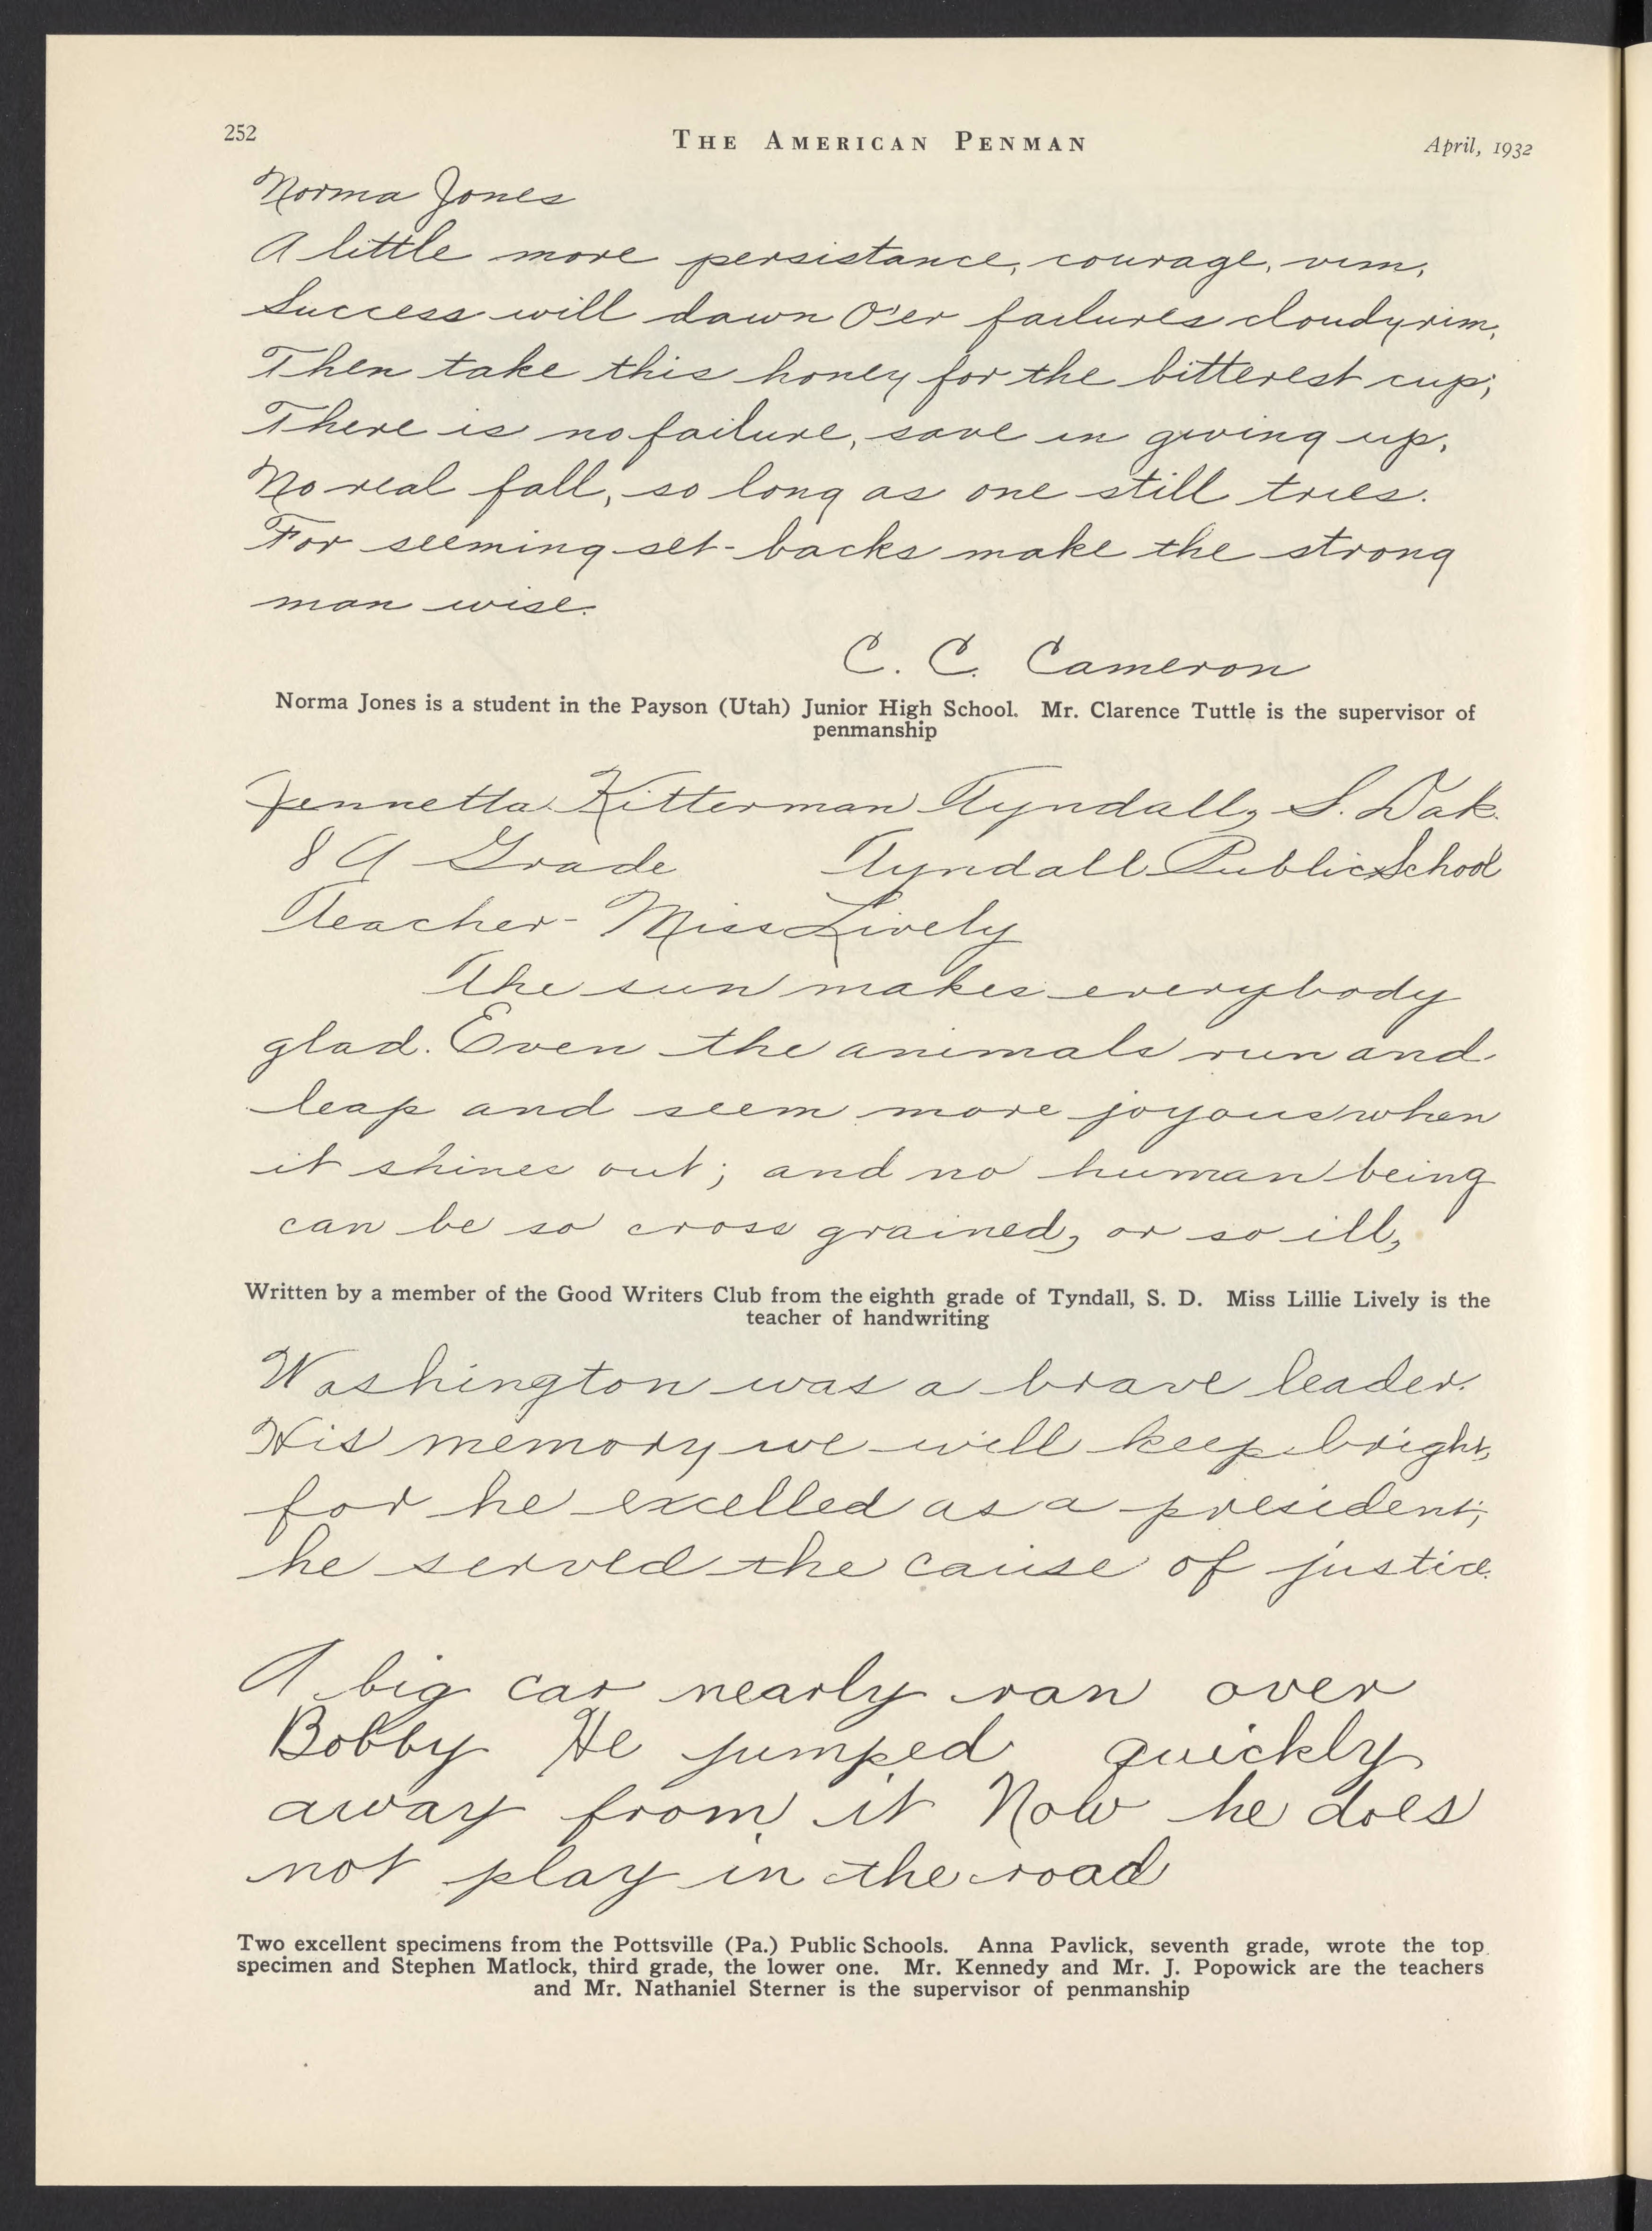 252
THE AMERICAN PENMAN
April, 1932
Norma Jones
A little more persistance, courage, vim,
Success will dawn O'er failures cloudy rim,
Then take this honey for the bitterest cup;
There is no failure, save in giving up,
No real fall, so long as one still tries.
For seeming set-backs make the strong
man wise.
C. C. Cameron
Norma Jones is a student in the Payson (Utah) Junior High School. Mr. Clarence Tuttle is the supervisor of
penmanship
Jennetta Kitterman Tyndall, S. Dak.
8 A Grade Tyndall Public School
Teacher - Miss Lively
The sun makes everybody
glad. Even the animals run and
leap and seem more joyous when
it shines out; and no human being
can be so cross grained, or so ill,
Written by a member of the Good Writers Club from the eighth grade of Tyndall, S. D. Miss Lillie Lively is the
teacher of handwriting
Washington was a brave leader.
His memory we will keep bright,
for he excelled as a president;
he served the cause of justice.
A big car nearly ran over
Bobby He jumped quickly
away from it Now he does
not play in the road
Two excellent specimens from the Pottsville (Pa.) Public Schools. Anna Pavlick, seventh grade, wrote the top
specimen and Stephen Matlock, third grade, the lower one. Mr. Kennedy and Mr. J. Popowick are the teachers
and Mr. Nathaniel Sterner is the supervisor of penmanship